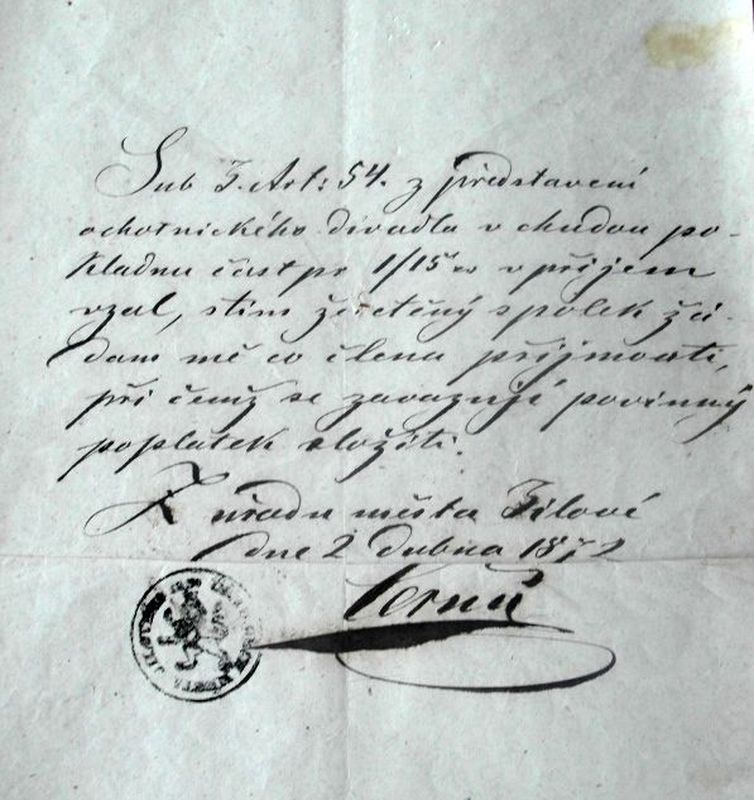 Sub J. Art: 54. z představení
ochotnického divadla v chudou po-
kladnu část pr 1/15 v příjem
vzal, stím žádam
mě co člena přijmouti,
při čemž se zavazuji povinný
poplatek složiti.
Z úradu města Jilové
dne 2 dubna 1872
Černý